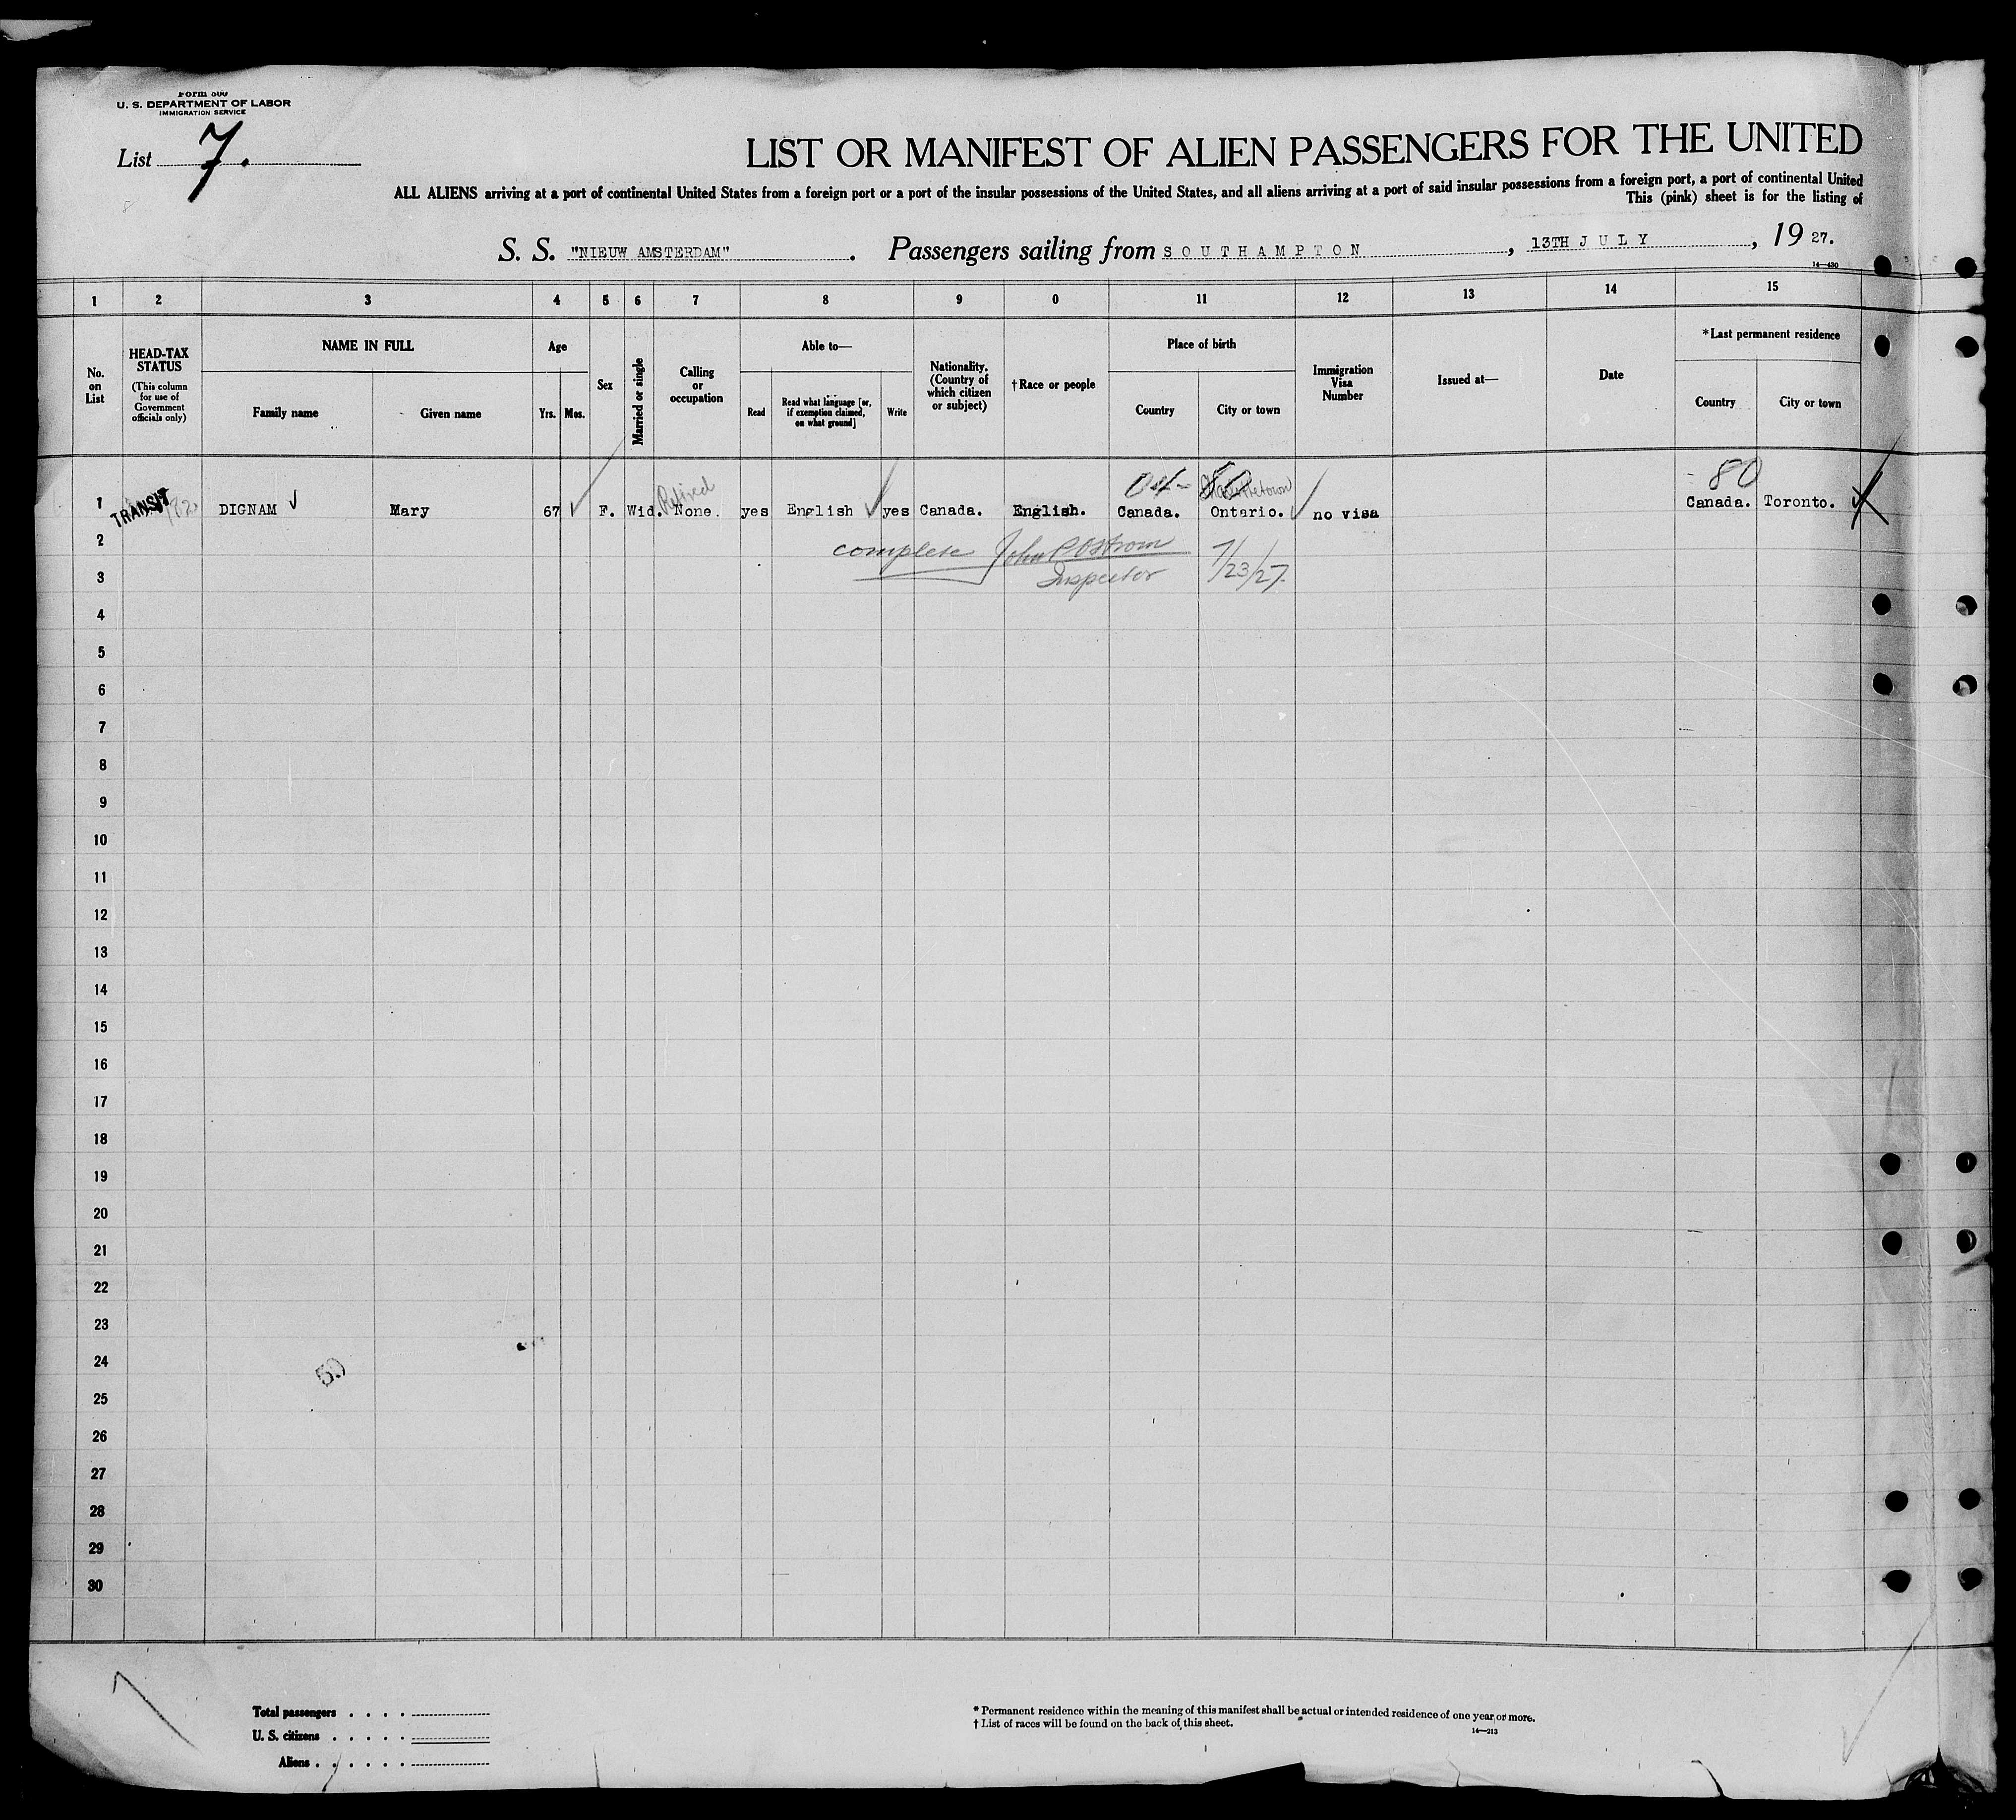 Form 500
U. S. DEPARTMENT OF LABOR
IMMIGRATION SERVICE
List 7.
LIST OR MANIFEST OF ALIEN PASSENGERS FOR THE UNITED
ALL ALIENS arriving at a port of continental United States from a foreign port or a port of the insular possessions of the United States, and all aliens arriving at a port of said insular possessions from a foreign port, a port of continental United
This (pink) sheet is for the listing of
S. S. "NIEUW AMSTERDAM". Passengers sailing from SOUTHAMPTON, 13TH JULY, 19 27.
14—430
1 2 3 4 5 6 7 8 9 0 11 12 13 14 15
No. on List
HEAD-TAX STATUS
(This column for use of Government officials only)
NAME IN FULL
Family name
Given name
Age
Yrs.
Mos.
Sex
Married or single
Calling or occupation
Able to—
Read
Read what language [or, if exemption claimed, on what ground]
Write
Nationality. (Country of which citizen or subject)
†Race or people
Place of birth
Country
City or town
Immigration Visa Number
Issued at—
Date
*Last permanent residence
Country
City or town
Retired 04- 80 80
1 TRANSIT DIGNAM Mary 67 F. Wid. None. yes English yes Canada. English. Canada. Ontario. no visa Canada. Toronto.
2 complete John P Ostrom 7/23/27.
3 Inspector
4
5
6
7
8
9
10
11
12
13
14
15
16
17
18
19
20
21
22
23
24
25
26
27
28
29
30
50
Total passengers . . . .
U. S. citizens . . . . .
Aliens . . . . . .
* Permanent residence within the meaning of this manifest shall be actual or intended residence of one year or more.
† List of races will be found on the back of this sheet.
14—213